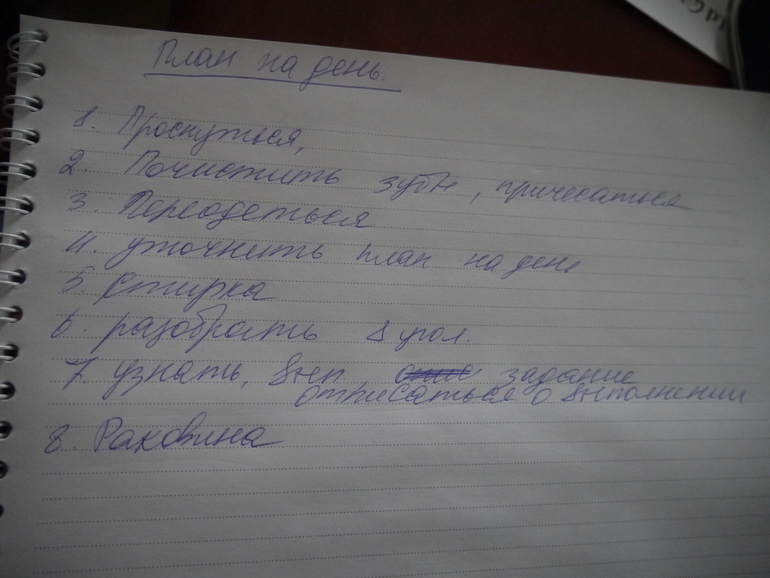 План на день.
1. Проснуться,
2. Почистить зубы, причесаться
3. Переодеться
4. уточнить план на день
5. Стирка
6. разобрать 1 угол.
7. узнать, вып задание
отписаться о выполнении
8. Раковина